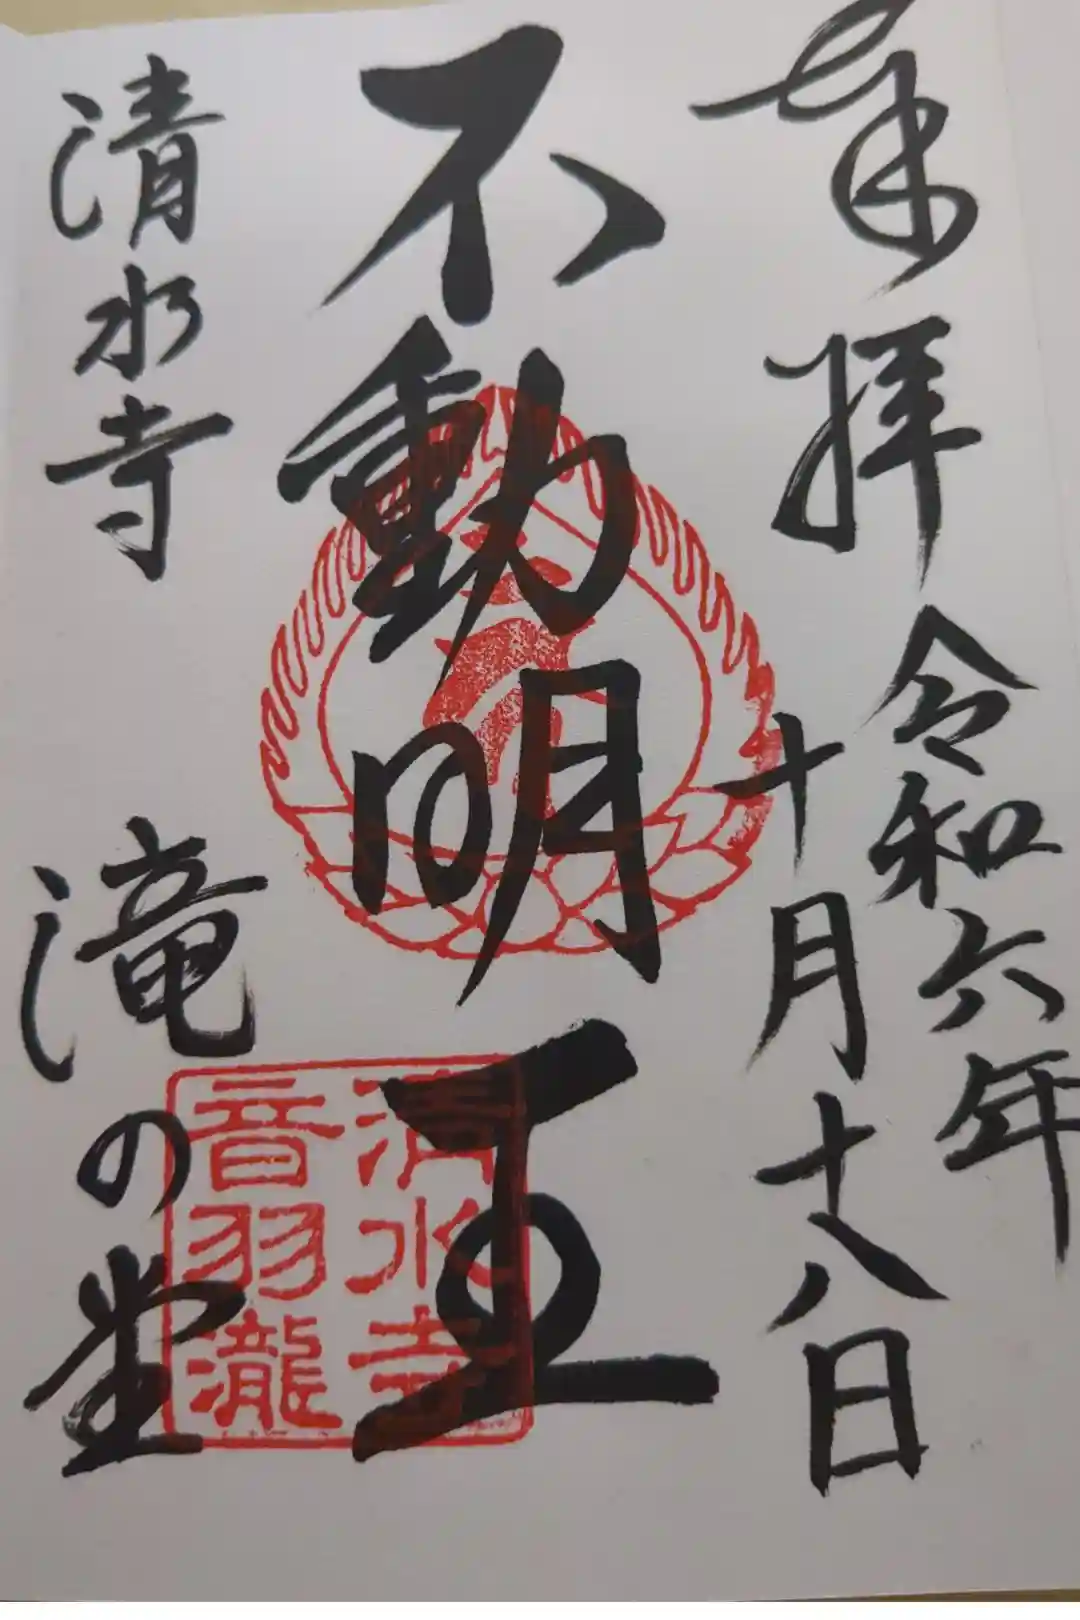 奉拝
令和六年
十月十八日
不動明王
清水寺
滝の堂
清水寺
音羽瀧